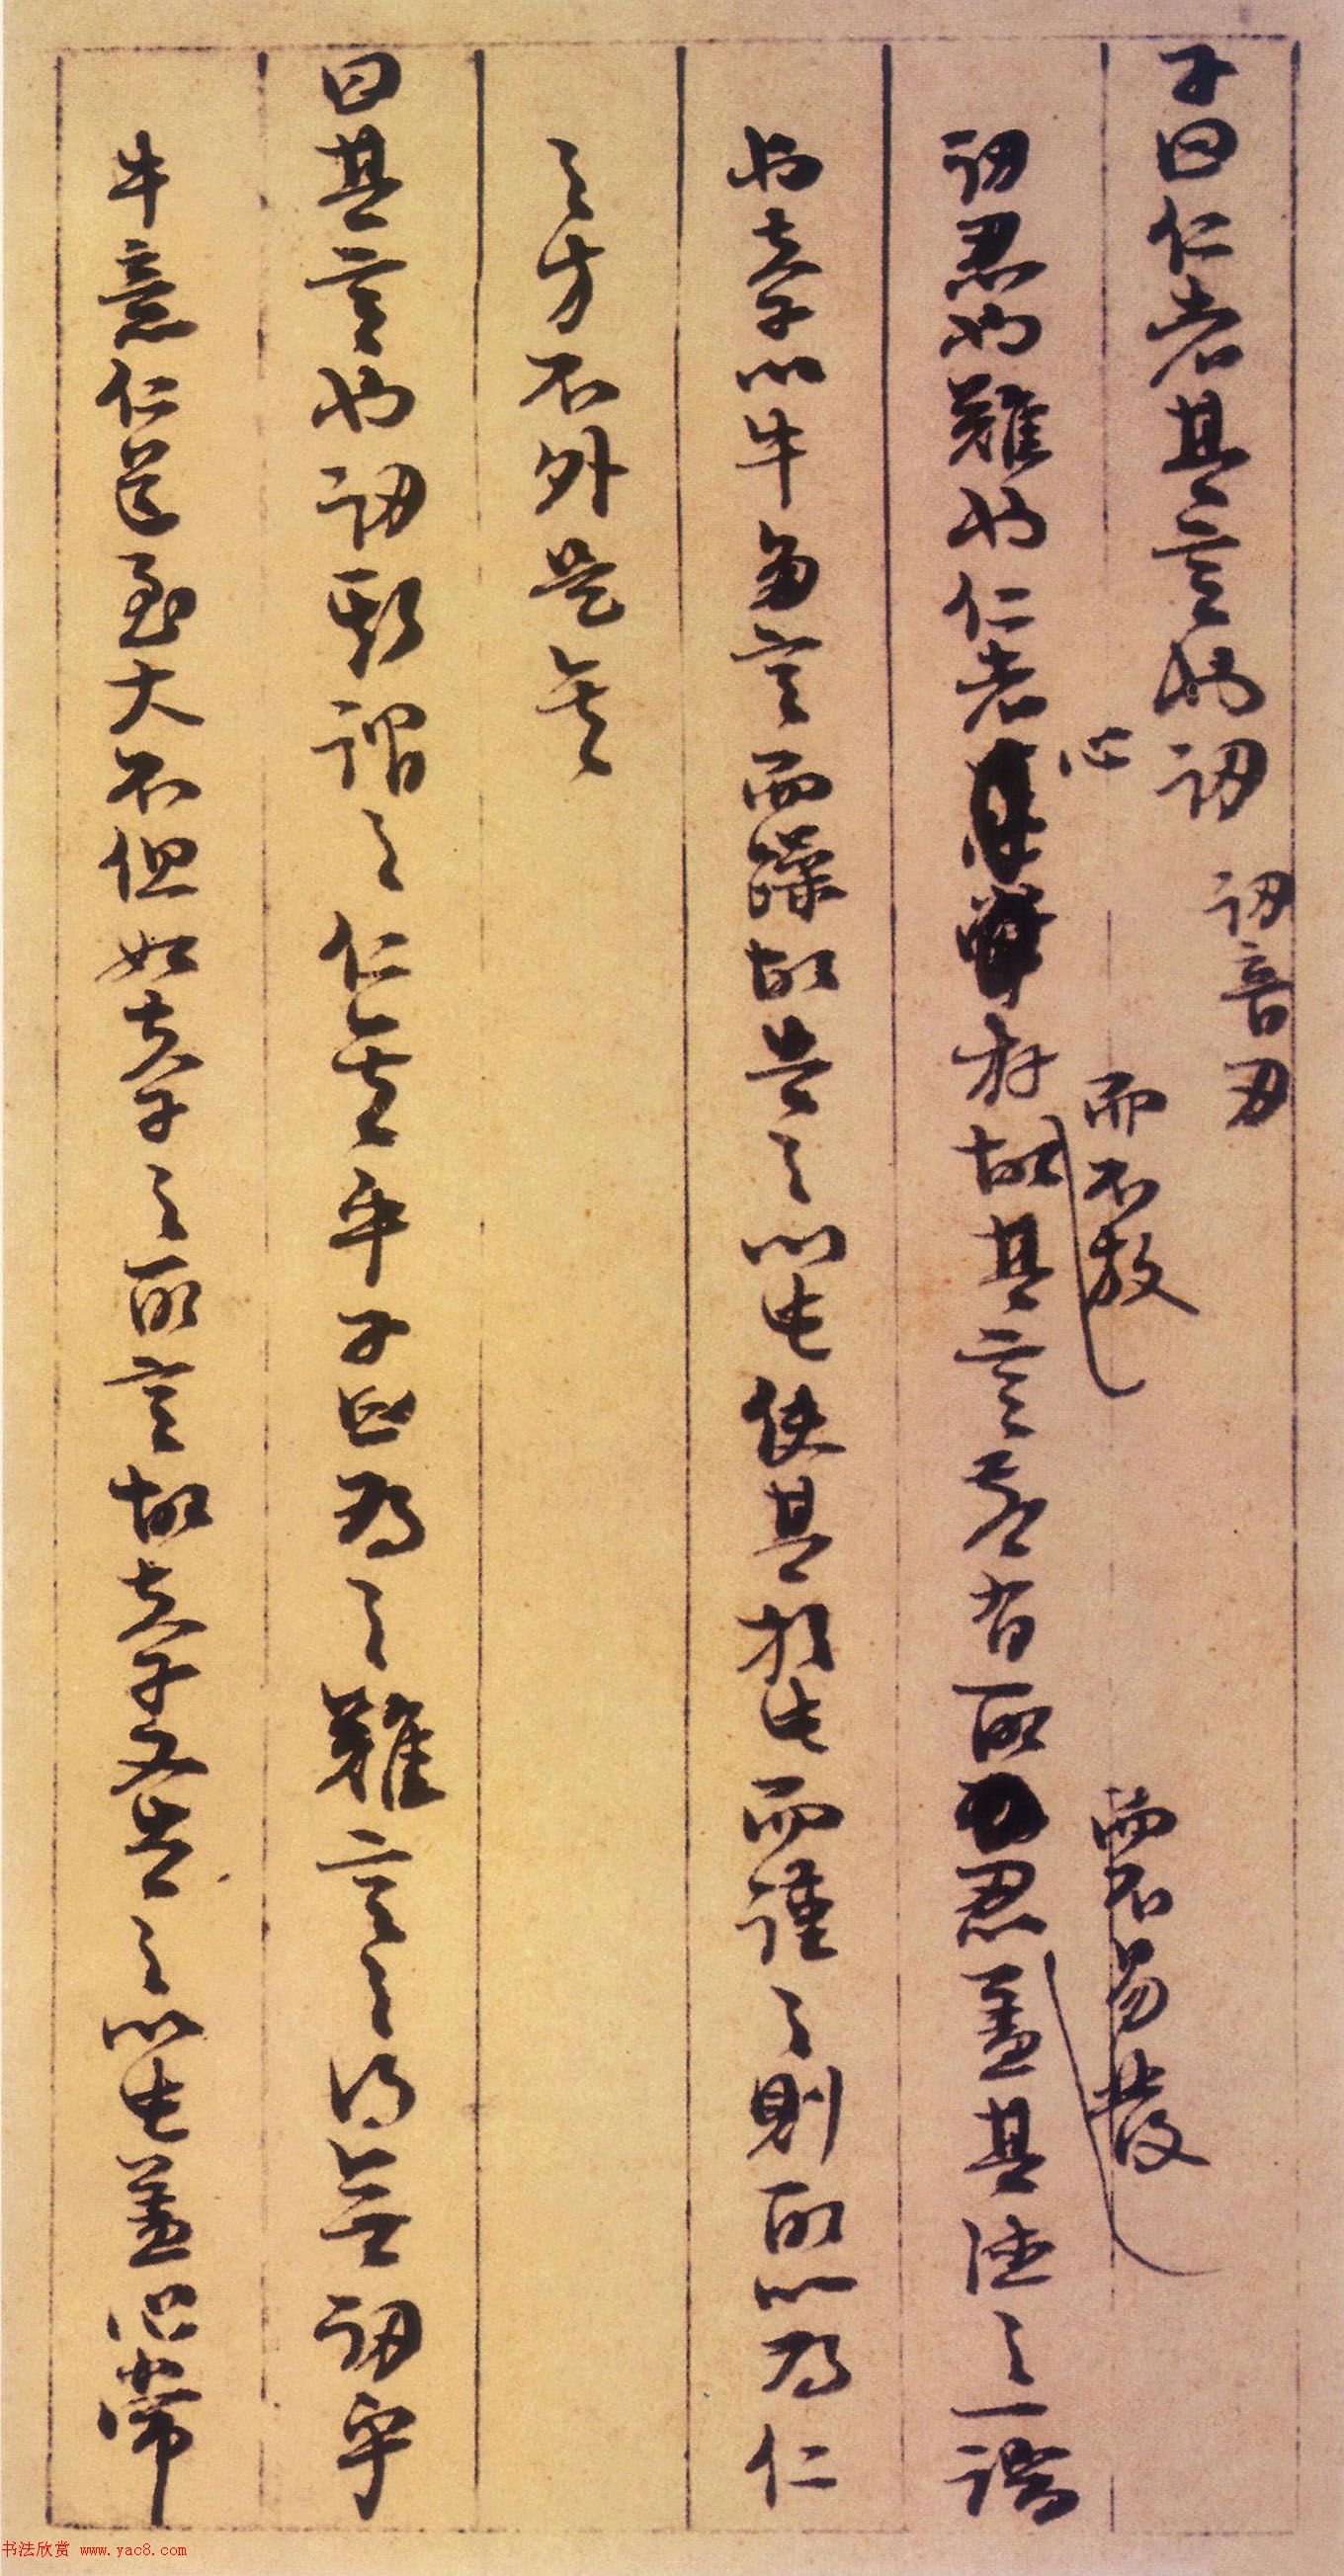 子曰仁者其言也訒
訒音刃
訒忍也難也仁者心存而不放故其言若有所忍而不易發蓋其德之一端
也夫子以牛多言而躁故告之以此使其於此而謹之則所以為仁
之方不外是矣
曰其言也訒斯謂之仁矣乎子曰為之難言之得無訒乎
牛意仁道至大不但如夫子之所言故夫子又告之以此蓋心常
书法欣赏 www.yac8.com